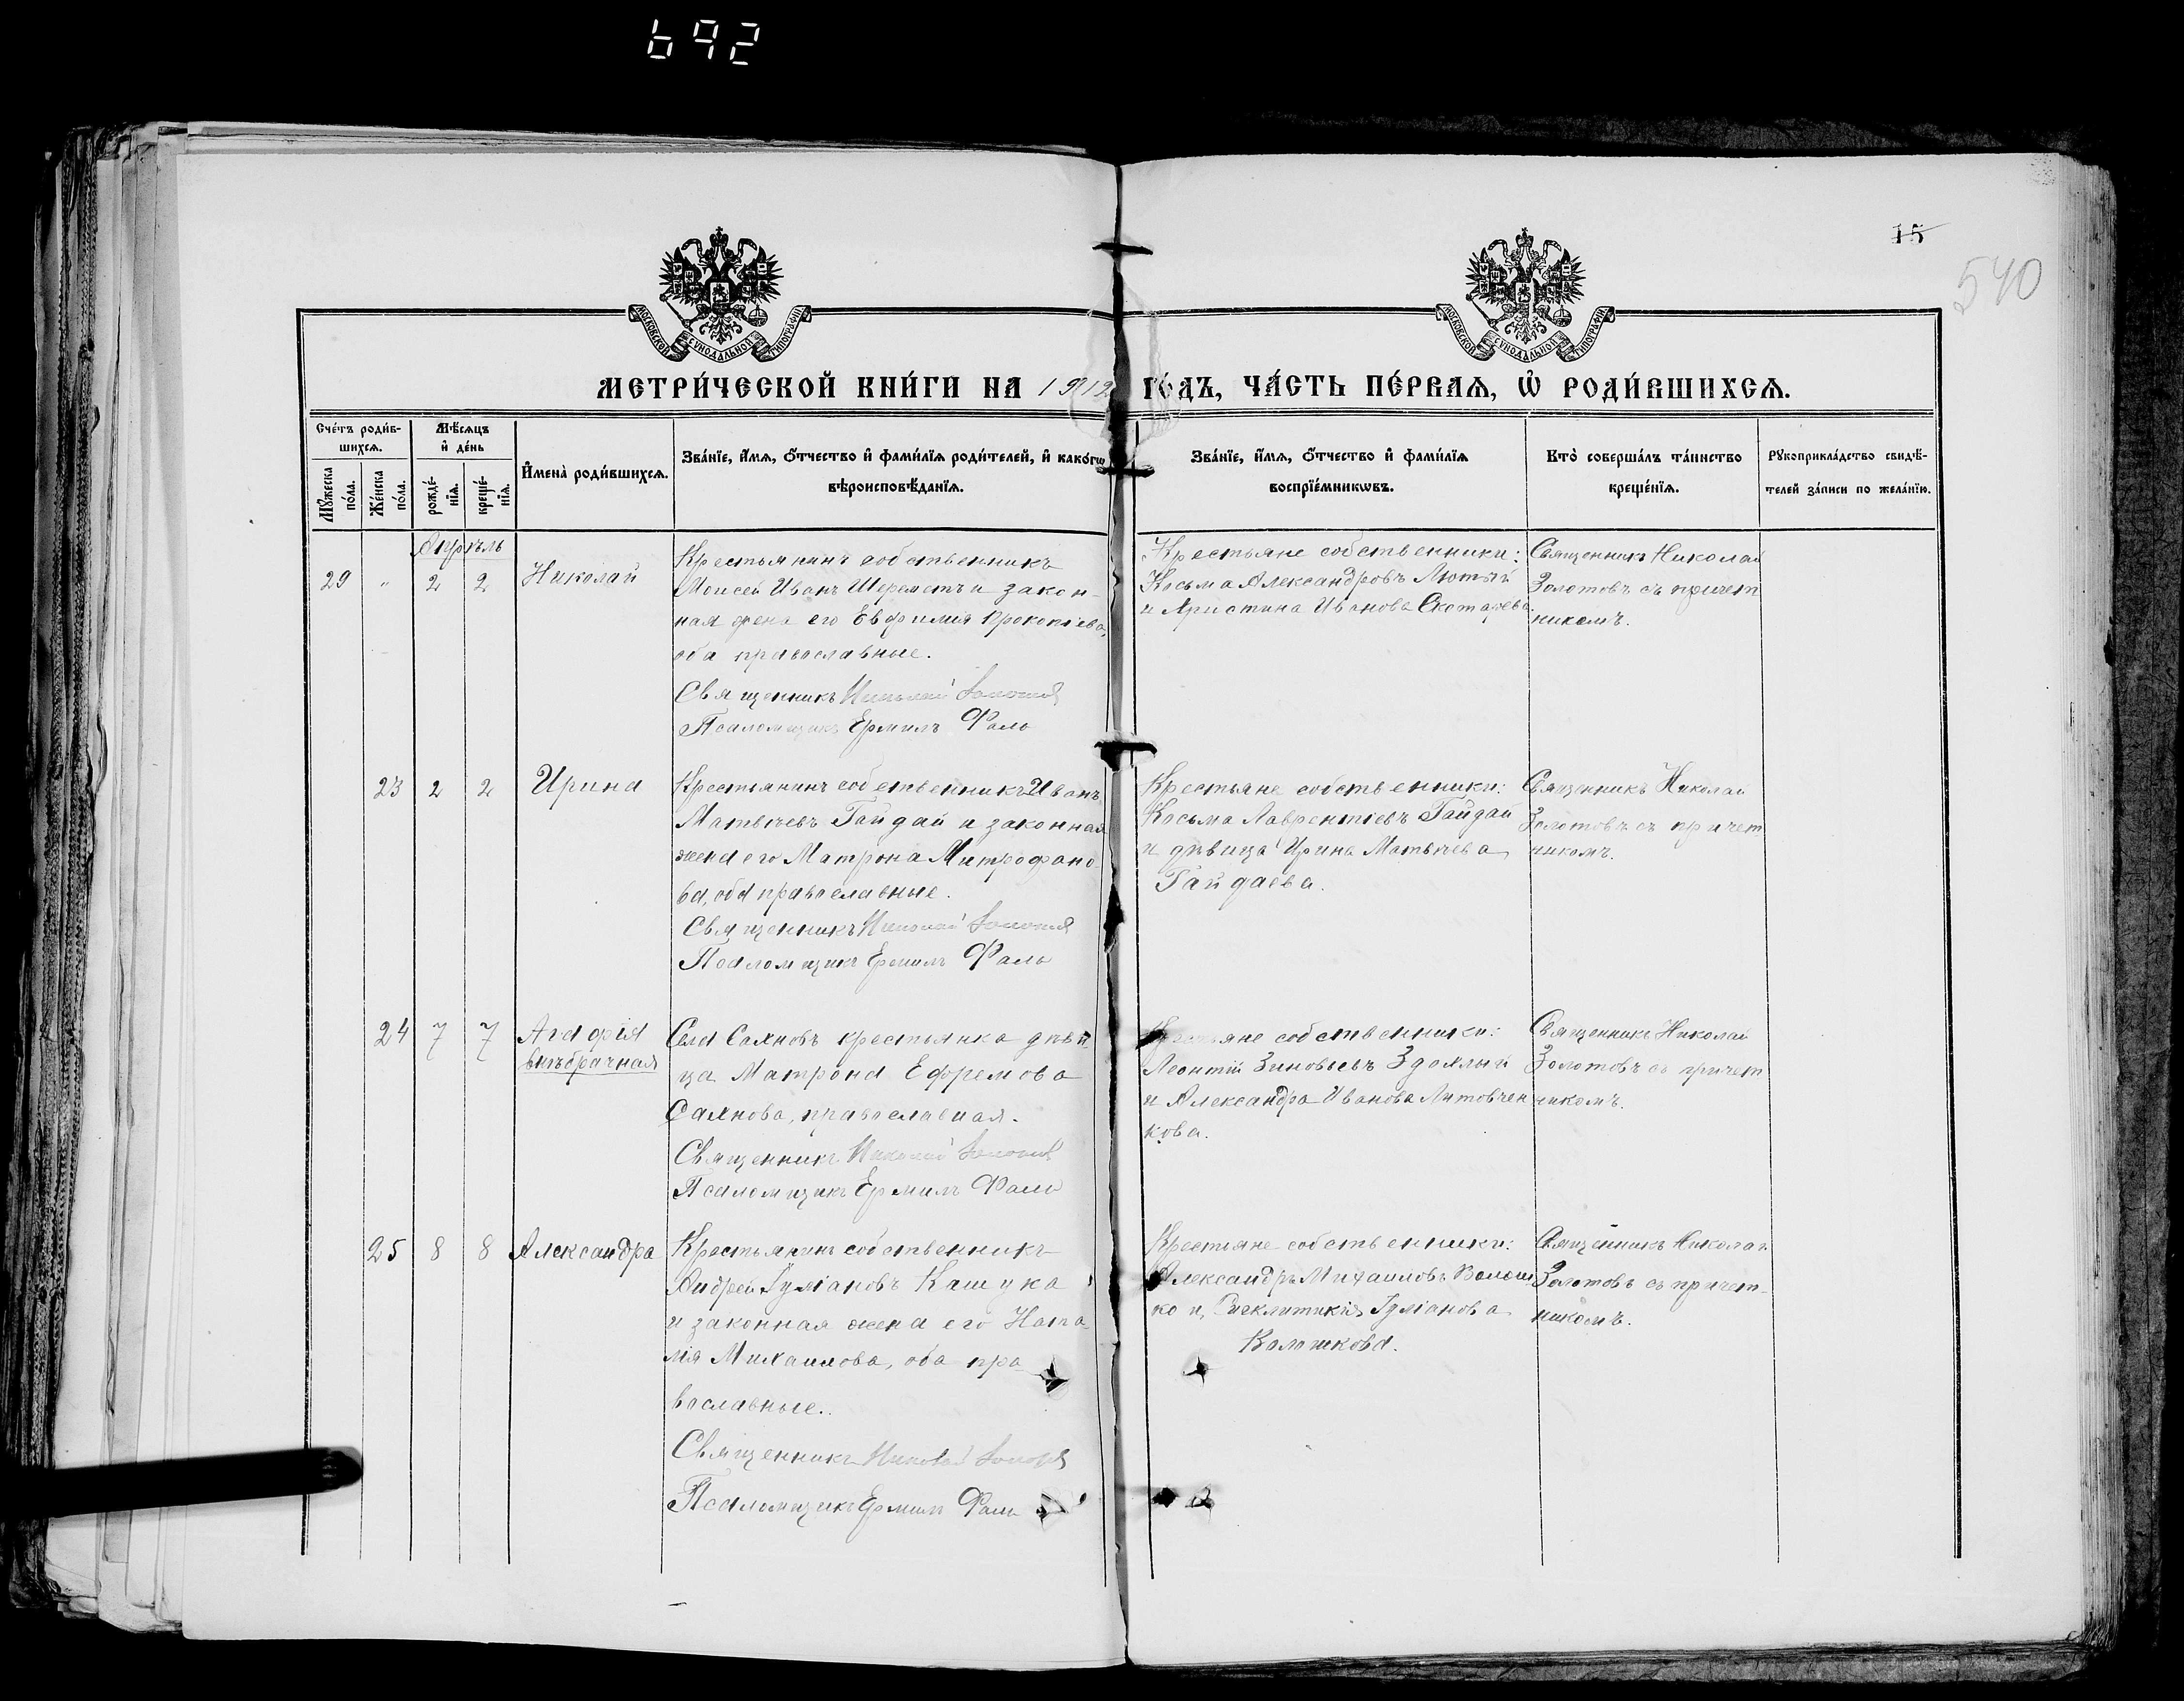 692
15
540
МОСКОВСКОЙ СѴНОДАЛЬНОЙ ТИПОГРАФІИ
МОСКОВСКОЙ СѴНОДАЛЬНОЙ ТИПОГРАФІИ
МЕТРИ́ЧЕСКОЙ КНИ́ГИ НА 1912 ГО́ДЪ, ЧА́СТЬ ПЕ́РВАѦ, Ѽ РОДИ́ВШИХСѦ.
Сче́тъ роди́в-
шихсѧ.
Мѣ́сѧцъ
и҆ де́нь
Мꙋ́жеска по́ла.
Же́нска по́ла.
рожде́-нїѧ.
креще́-нїѧ.
И҆мена̀ роди́вшихсѧ.
Зва́нїе, и҆́мѧ, ѻ҆́тчество и҆ фами́лїѧ роди́телей, и҆ како́гѡ
вѣроисповѣ́данїѧ.
Зва́нїе, и҆́мѧ, ѻ҆́тчество и҆ фами́лїѧ
воспрїе́мникѡвъ.
Кто̀ соверша́лъ та́инство
креще́нїѧ.
Рꙋкоприкла́дство свидѣ́-
телей за́писи по жела́нїю.
Апрѣль
29 „ 2 2 Николай
Крестьянинъ собственникъ
Моисей Иванъ Шереметъ и закон-
ная жена его Евфимия Прокопіева,
оба православные.
Священникъ Николай Золотовъ
Псаломщикъ Ермилъ Фаль
Крестьяне собственники:
Косьма Александровъ Лютый
и Христина Иванова Скотарева
Священникъ Николай
Золотовъ съ причет
никомъ.
23 2 2 Ирина
Крестьянинъ собственникъ Иванъ
Матвѣевъ Гайдай и законная
жена его Матрона Митрофано
ва, оба православные.
Священникъ Николай Золотовъ
Псаломщикъ Ермилъ Фаль
Крестьяне собственники:
Косьма Лаврентіевъ Гайдай
и дѣвица Ирина Матвѣева
Гайдаева.
Священникъ Николай
Золотовъ съ причет
никомъ.
24 7 7 Агафія
внѣбрачная
Села Саяновъ крестьянка дѣви-
ца Матрона Ефремова
Саянова, православная.
Священникъ Николай Золотовъ
Псаломщикъ Ермилъ Фаль
Крестьяне собственники:
Леонтій Зиновьевъ
и Александра Иванова Литовчен
кова.
Священникъ Николай
Золотовъ съ причет
никомъ.
25 8 8 Александра
Крестьянинъ собственникъ
Андрей Іуліановъ Кашука
и законная жена его Ната-
лія Михаилова, оба пра
вославные.
Священникъ Николай Золотовъ
Псаломщикъ Ермилъ Фаль
Крестьяне собственники:
Александръ Михаиловъ Волош
ко и Іуліанова
Волошкова.
Священникъ Николай
Золотовъ съ причет-
никомъ.